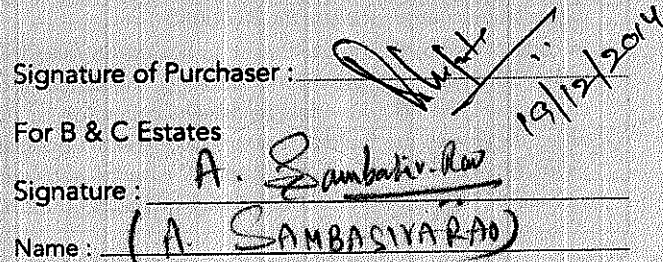 Signature of Purchaser :
19/12/2014
For B & C Estates
Signature : A. Sambasiv. Rao
Name : (A. SAMBASIVARAO)